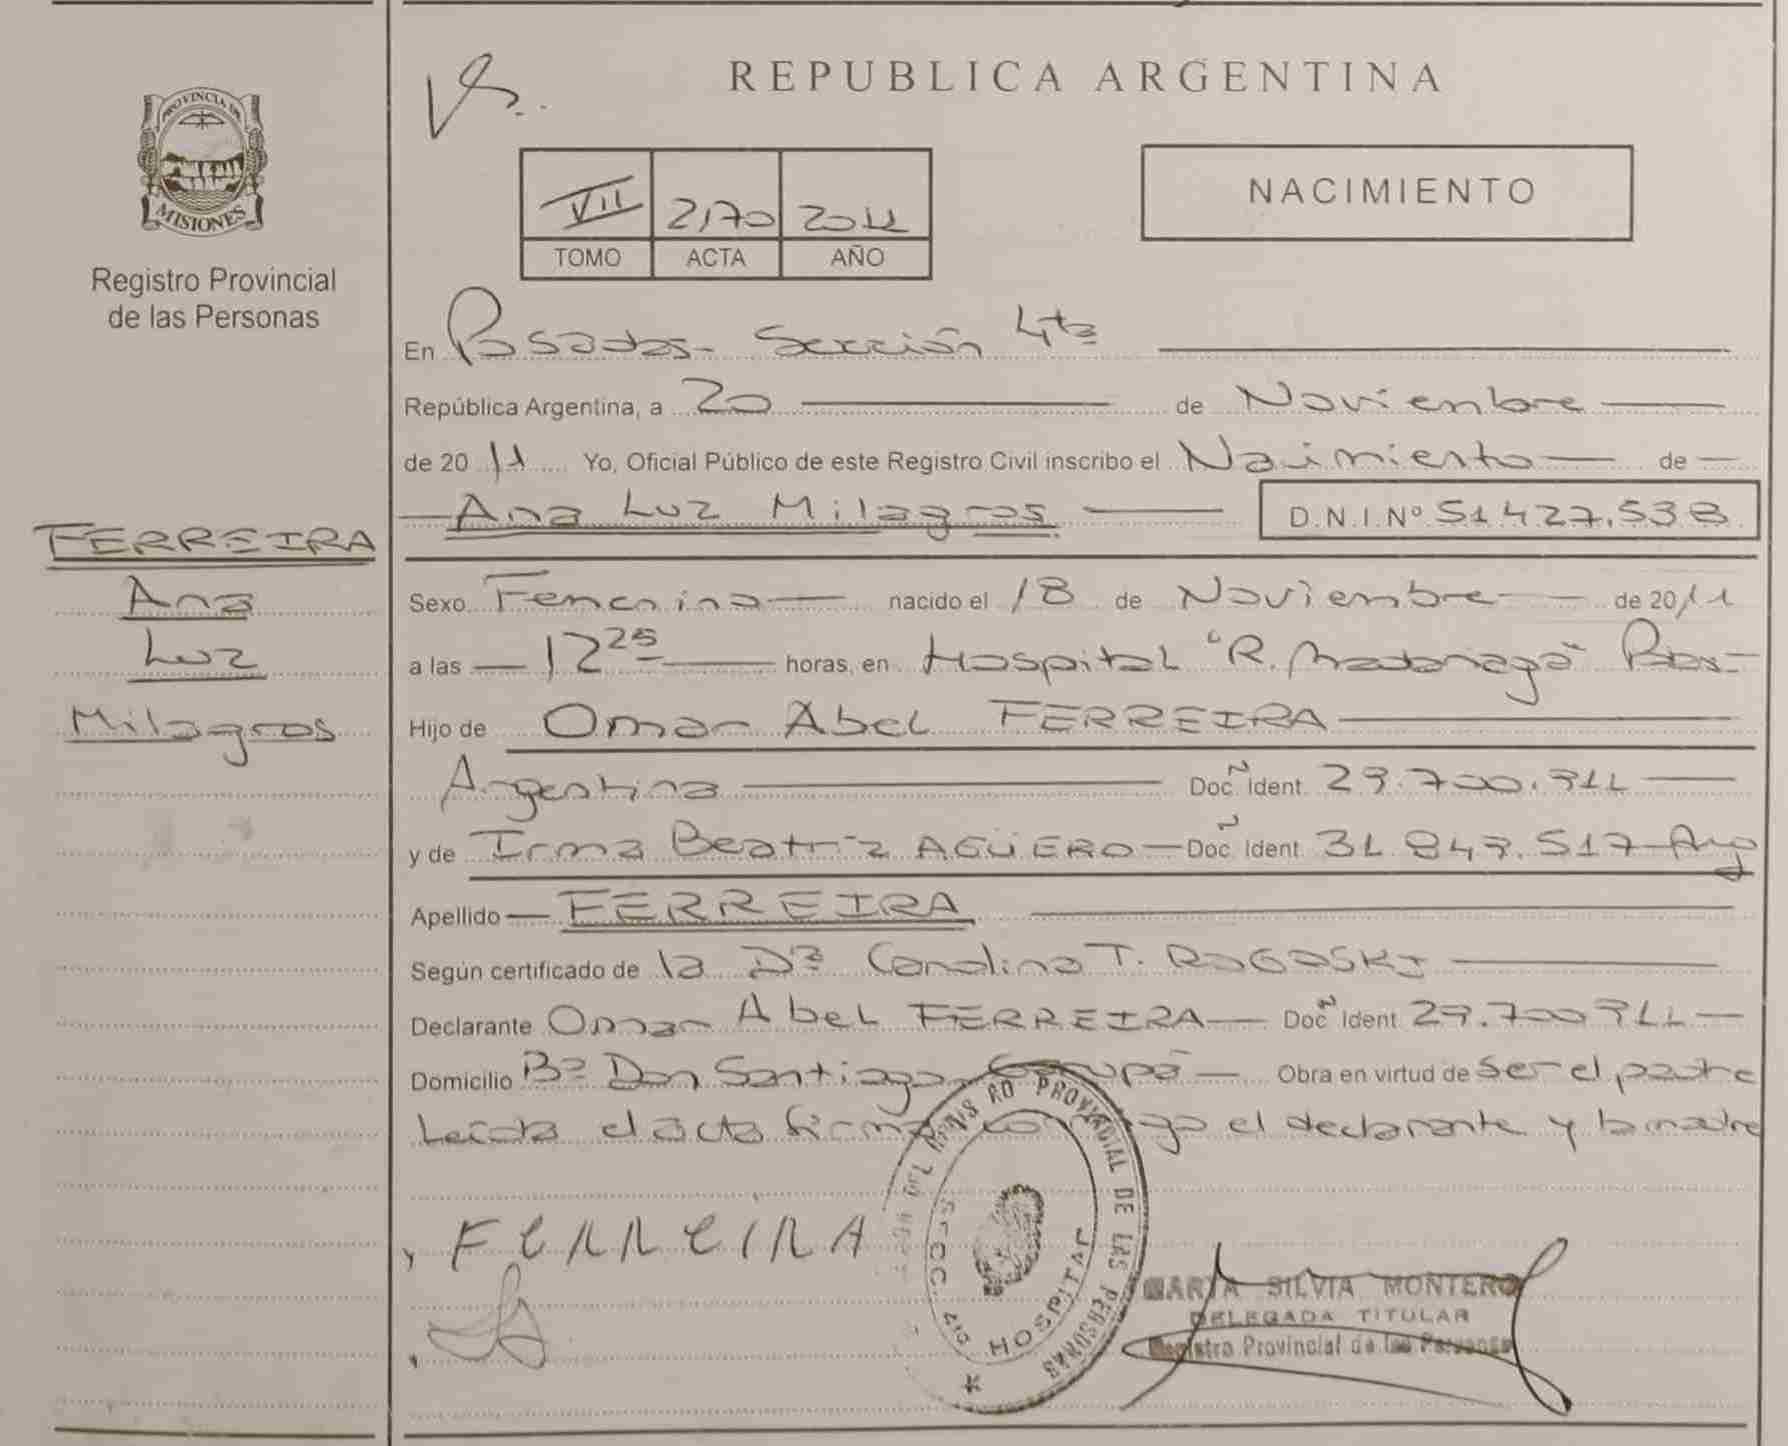 PROVINCIA DE
MISIONES
Registro Provincial
de las Personas
FERREIRA
Ana
Luz
Milagros
REPUBLICA ARGENTINA
NACIMIENTO
VII 2170 2011
TOMO ACTA AÑO
En Posadas - Sección 4ta
República Argentina, a 20 de Noviembre
de 2011 Yo, Oficial Público de este Registro Civil inscribo el Nacimiento de
Ana Luz Milagros D.N.I.Nº 51.427.538
Sexo Femenino nacido el 18 de Noviembre de 2011
a las 12 25 horas, en Hospital "R. Madariaga" Pdas-
Hijo de Omar Abel FERREIRA
Argentina Doc. Ñ Ident. 29.700.911
y de Irma Beatriz AGÜERO Doc. Ñ Ident. 31.847.517 Arg
Apellido FERREIRA
Según certificado de la Dra Carolina T. ROGOSKI
Declarante Omar Abel FERREIRA Doc. Ñ Ident. 29.700911
Domicilio Bº Don Santiago, Garupá Obra en virtud de ser el padre
Leída el acta firma conmigo el declarante y la madre
FERREIRA
REGISTRO PROVINCIAL DE LAS PERSONAS
SECC. 4ta
HOSPITAL
MARTA SILVIA MONTERO
DELEGADA TITULAR
Registro Provincial de las Personas